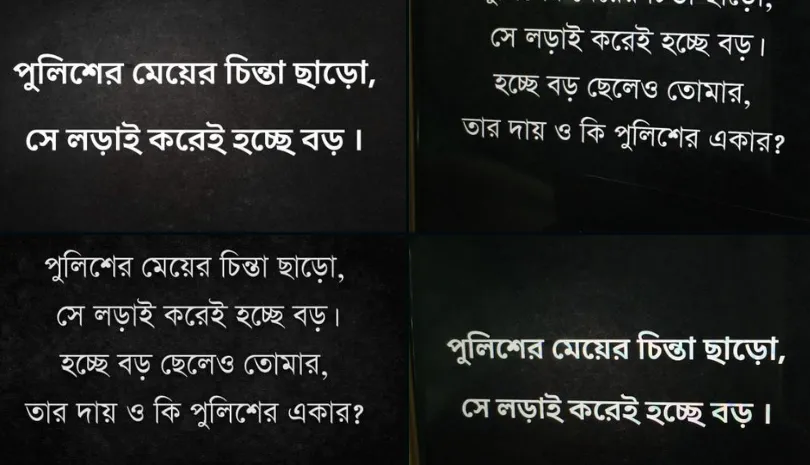 পুলিশের মেয়ের চিন্তা ছাড়ো,
সে লড়াই করেই হচ্ছে বড় ।
সে লড়াই করেই হচ্ছে বড়।
হচ্ছে বড় ছেলেও তোমার,
তার দায় ও কি পুলিশের একার?
পুলিশের মেয়ের চিন্তা ছাড়ো,
সে লড়াই করেই হচ্ছে বড়।
হচ্ছে বড় ছেলেও তোমার,
তার দায় ও কি পুলিশের একার?
পুলিশের মেয়ের চিন্তা ছাড়ো,
সে লড়াই করেই হচ্ছে বড় ।